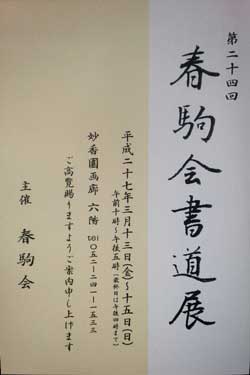 第二十四回
春駒会書道展
平成二十七年三月十三日(金)〜十五日(日)
午前十時〜午後五時(最終日は午後四時まで)
妙香園画廊 六階 tel〇五二ー二四一ー一五三三
ご高覧賜りますようご案内申し上げます
主催 春駒会